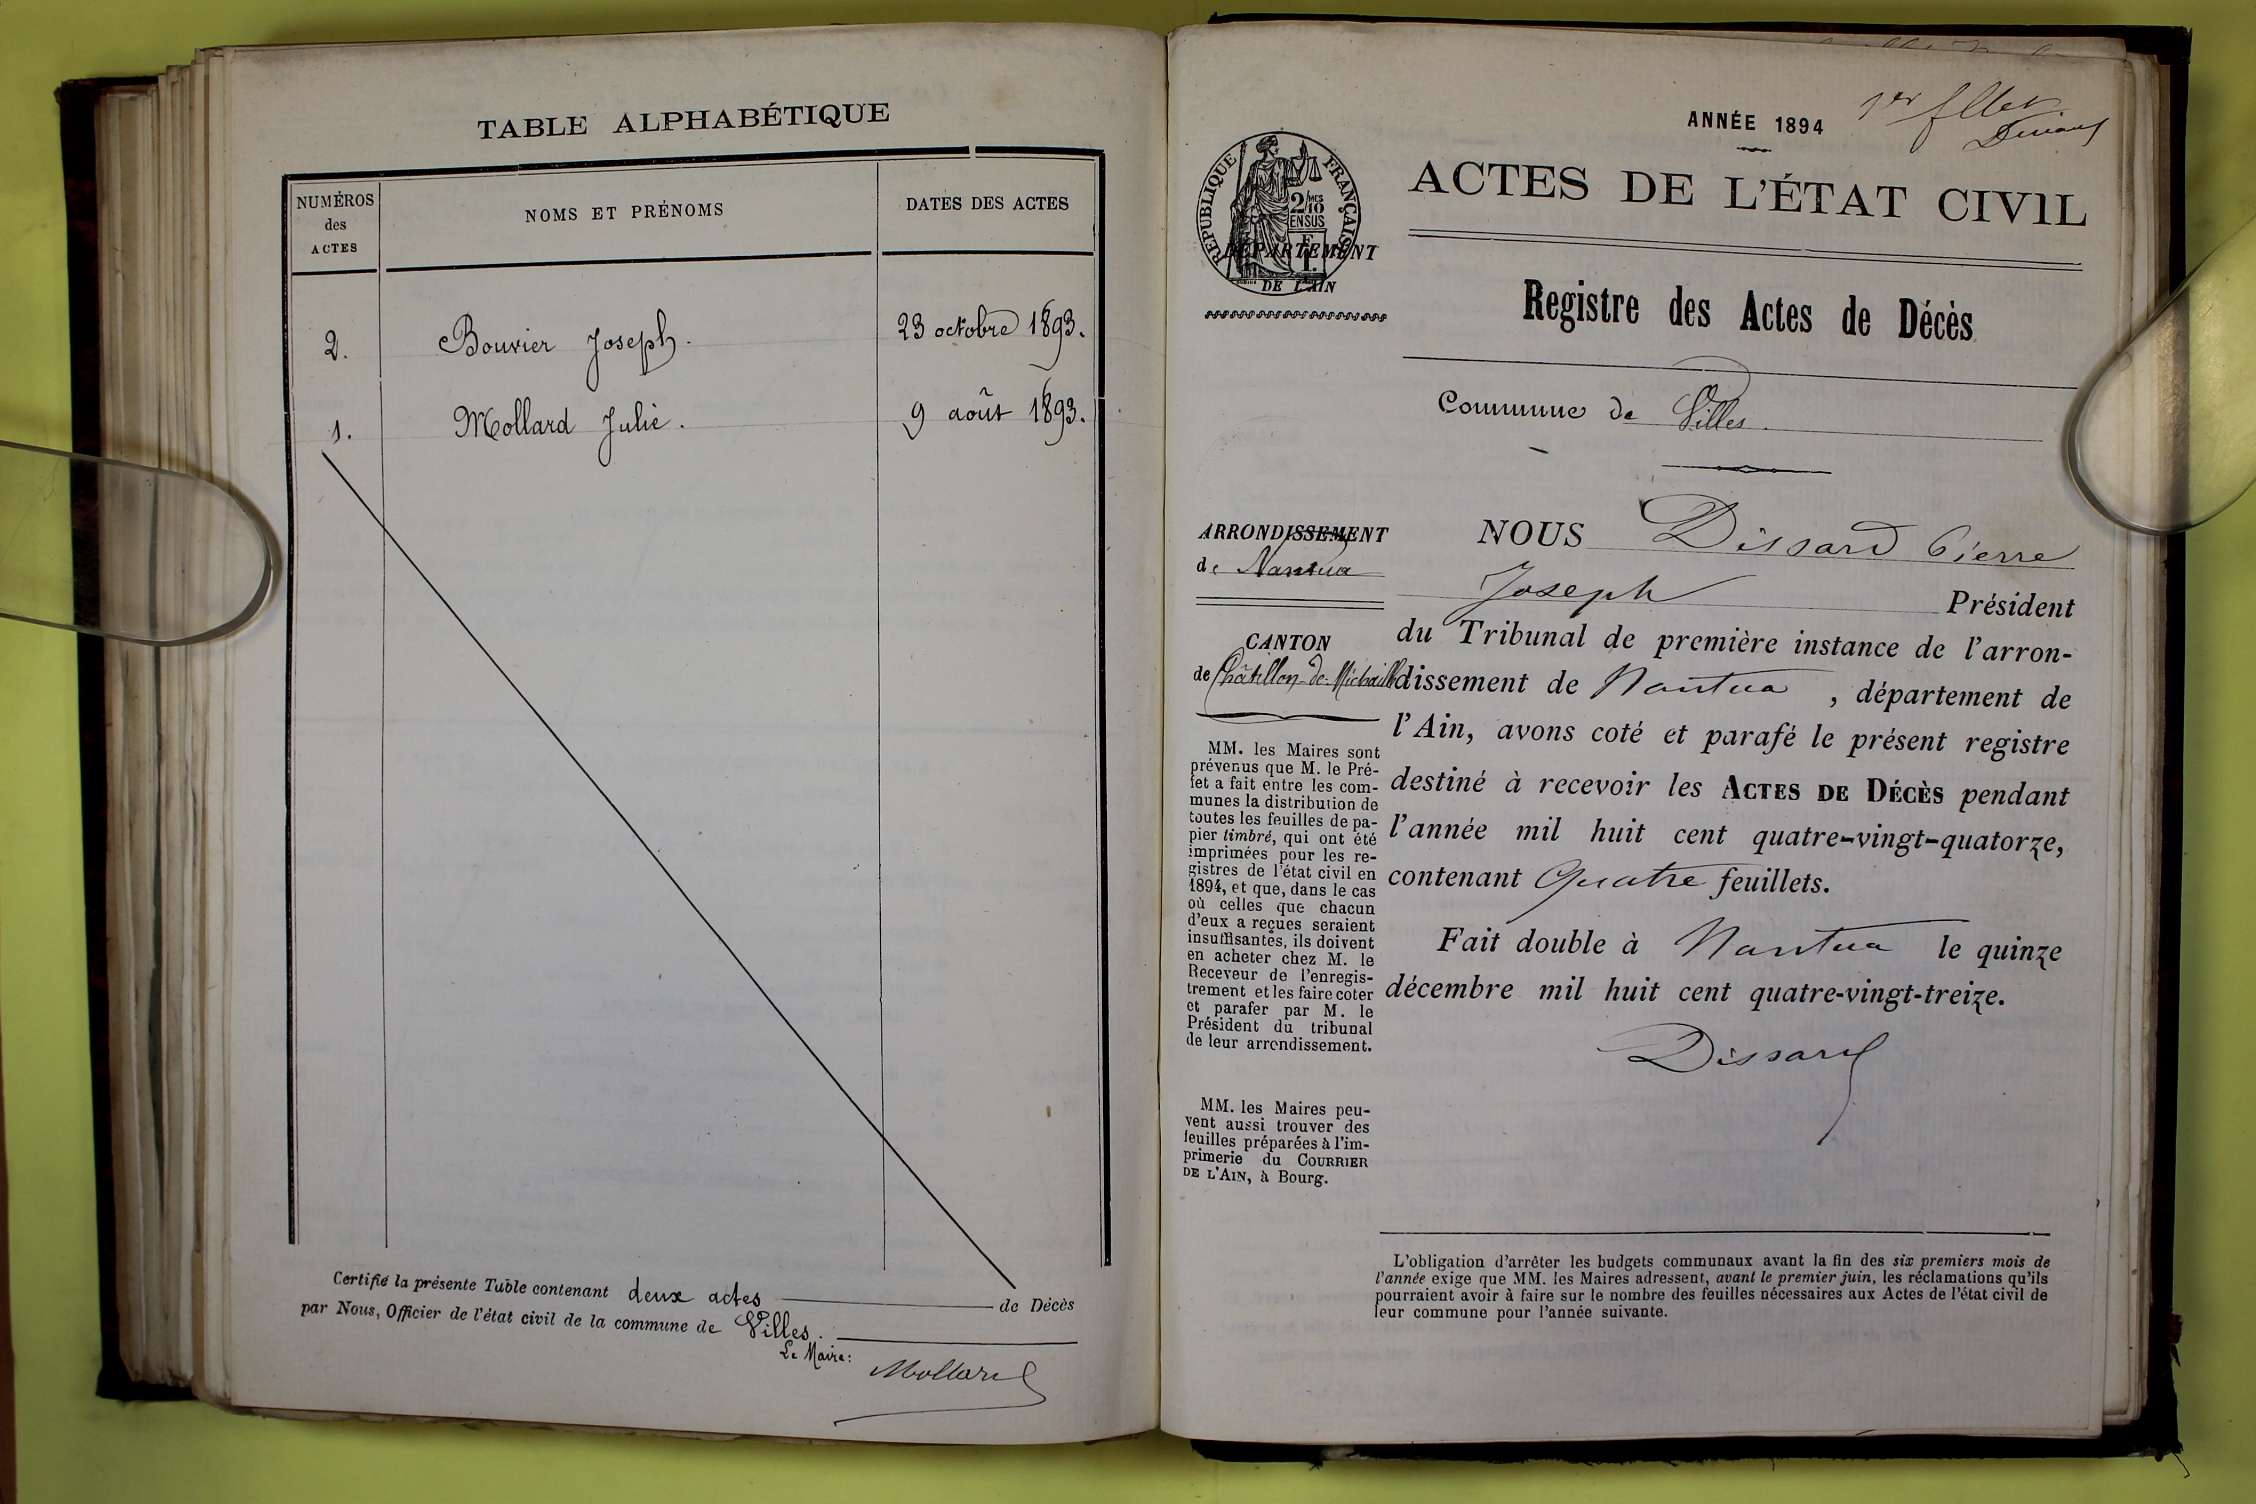 TABLE ALPHABÉTIQUE
NUMÉROS
des
ACTES
NOMS ET PRÉNOMS
DATES DES ACTES
2. Bouvier Joseph. 23 octobre 1893.
1. Mollard Julie. 9 août 1893.
Certifié la présente Table contenant deux actes de Décès
par Nous, Officier de l'état civil de la commune de Villes.
Le Maire:
Mollard
ANNÉE 1894
1er fllet
Dissard
ACTES DE L'ÉTAT CIVIL
RÉPUBLIQUE FRANÇAISE
2/10
MES
EN SUS
DÉPARTEMENT
DE L'AIN
Registre des Actes de Décès
Commune de Villes.
ARRONDISSEMENT
de Nantua
CANTON
de Châtillon-de-Michaille
MM. les Maires sont
prévenus que M. le Pré-
fet a fait entre les com-
munes la distribution de
toutes les feuilles de pa-
pier timbré, qui ont été
imprimées pour les re-
gistres de l'état civil en
1894, et que, dans le cas
où celles que chacun
d'eux a reçues seraient
insuffisantes, ils doivent
en acheter chez M. le
Receveur de l'enregis-
trement et les faire coter
et parafer par M. le
Président du tribunal
de leur arrondissement.
MM. les Maires peu-
vent aussi trouver des
feuilles préparées à l'im-
primerie du COURRIER
DE L'AIN, à Bourg.
NOUS Dissard Pierre
Joseph Président
du Tribunal de première instance de l'arron-
dissement de Nantua, département de
l'Ain, avons coté et parafé le présent registre
destiné à recevoir les ACTES DE DÉCÈS pendant
l'année mil huit cent quatre-vingt-quatorze,
contenant Quatre feuillets.
Fait double à Nantua le quinze
décembre mil huit cent quatre-vingt-treize.
Dissard
L'obligation d'arrêter les budgets communaux avant la fin des six premiers mois de
l'année exige que MM. les Maires adressent, avant le premier juin, les réclamations qu'ils
pourraient avoir à faire sur le nombre des feuilles nécessaires aux Actes de l'état civil de
leur commune pour l'année suivante.